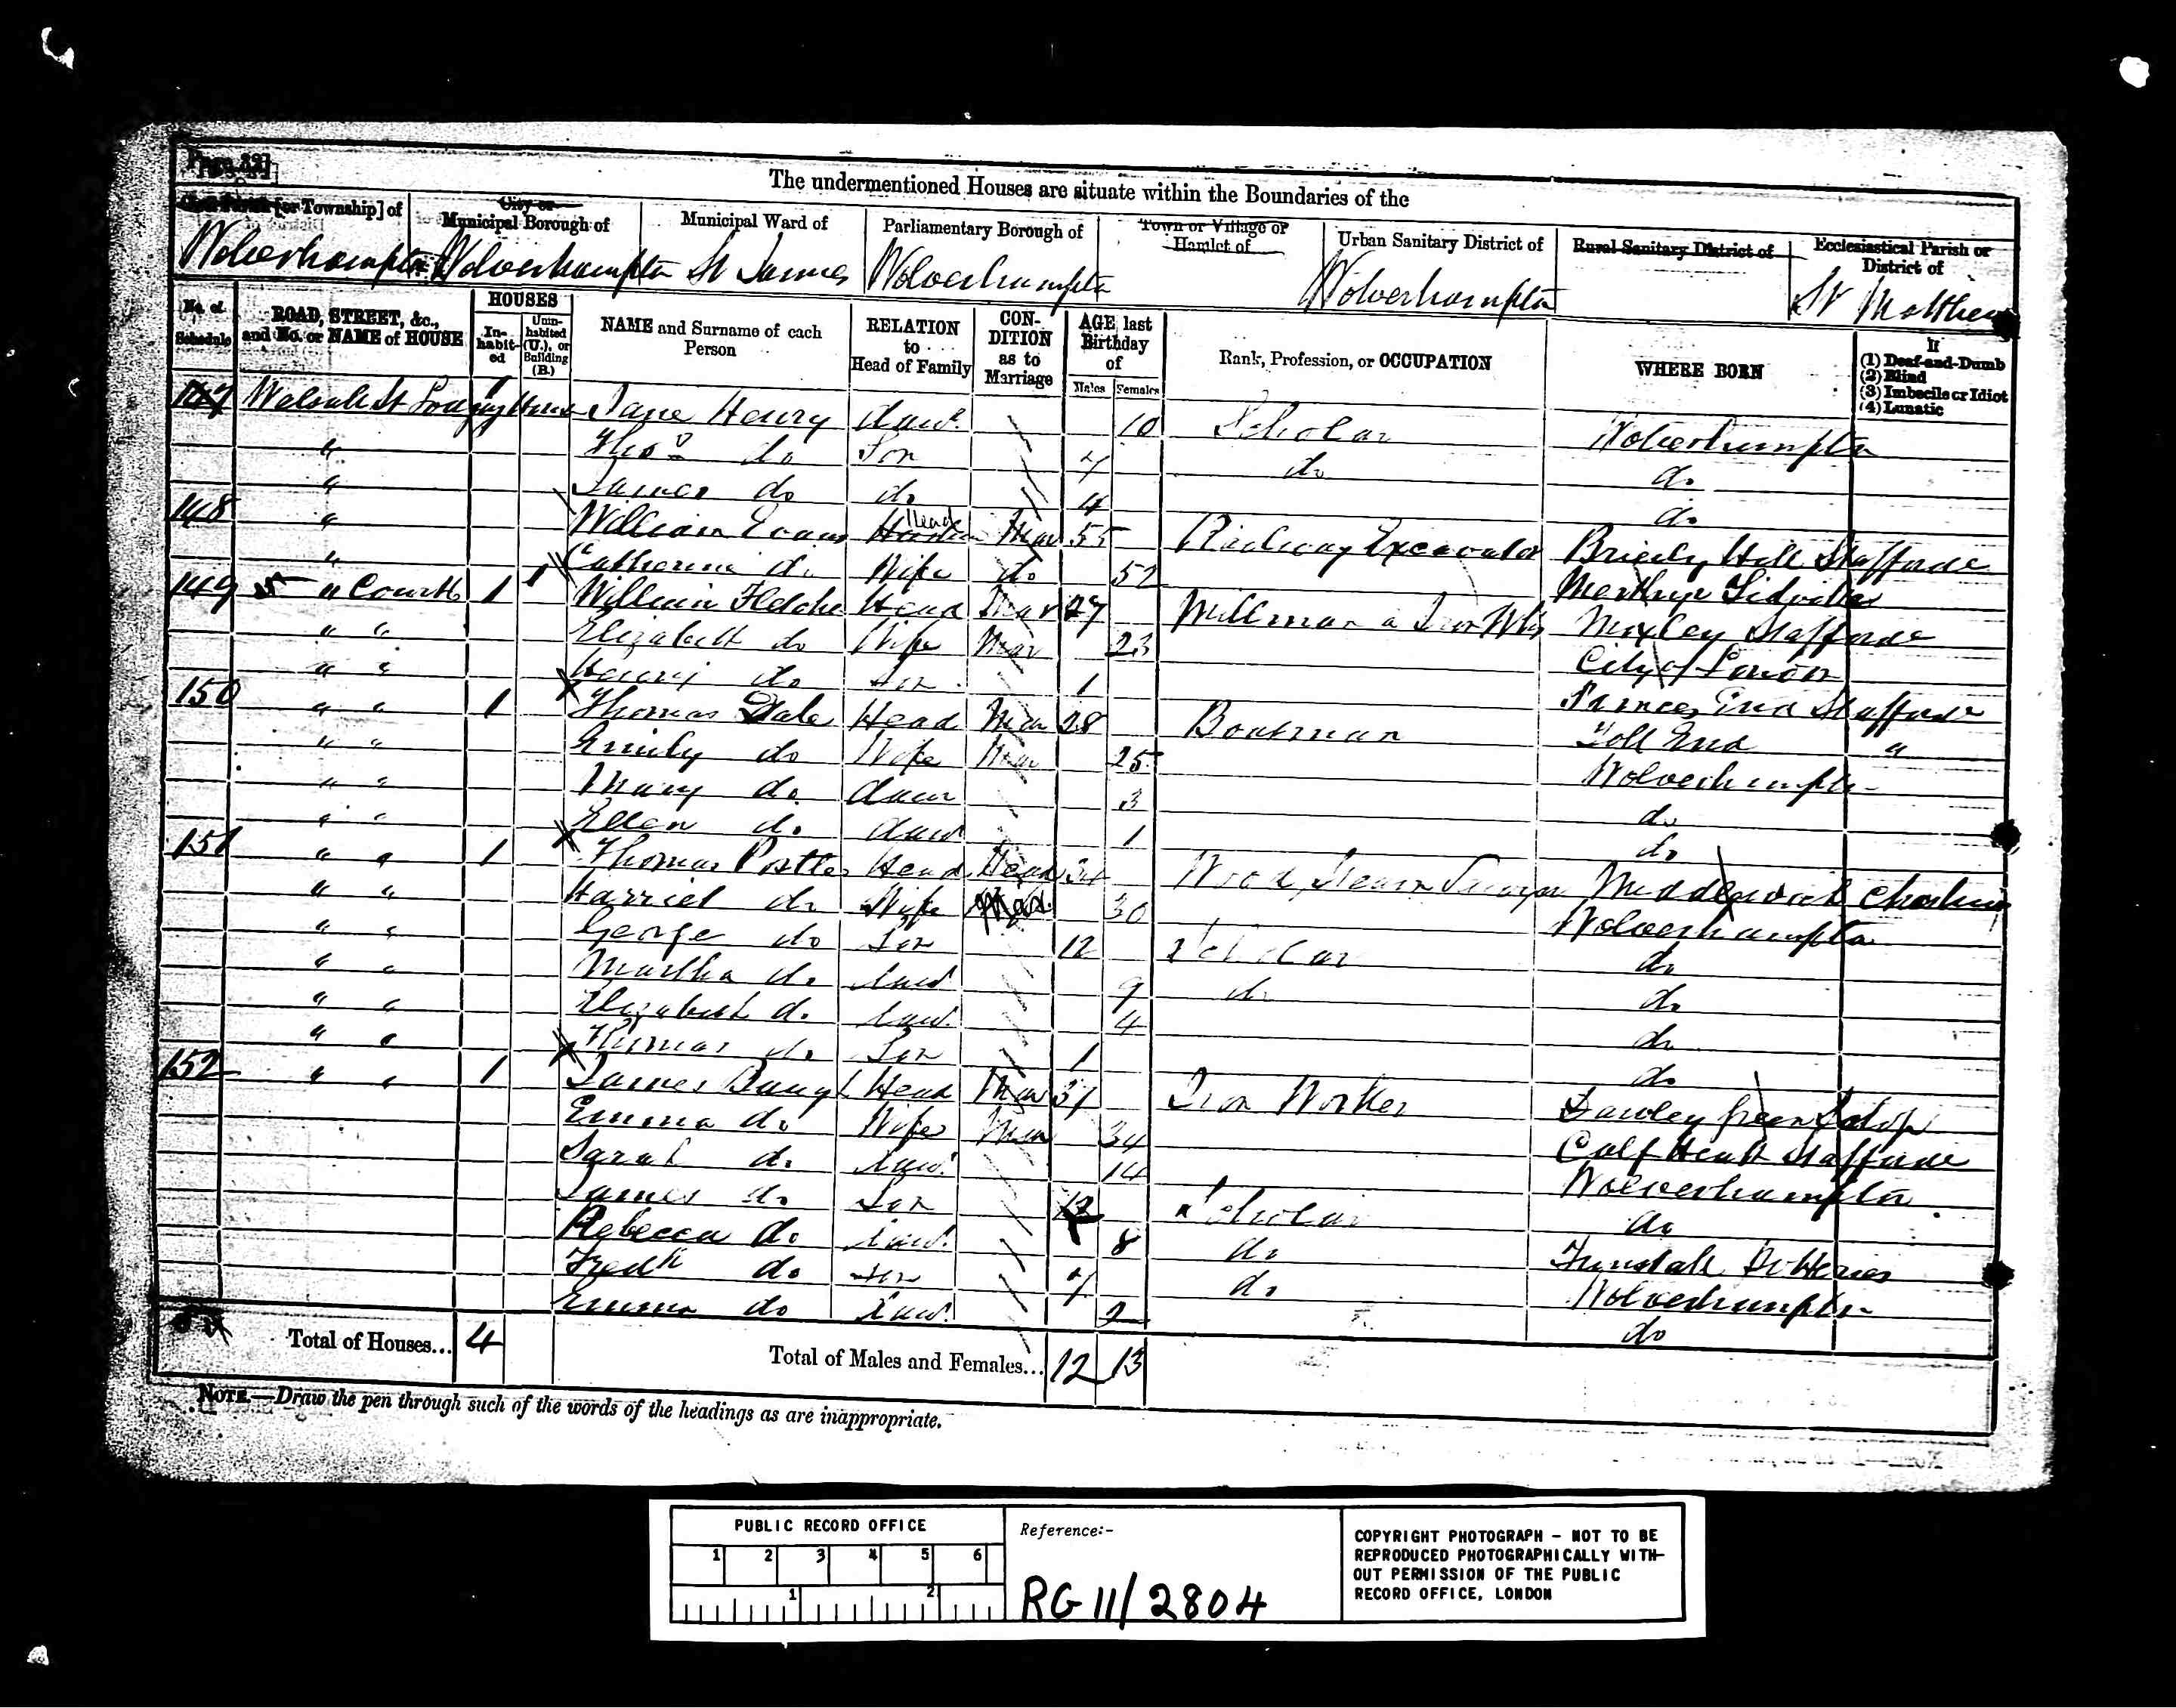 Page 32]
The undermentioned Houses are situate within the Boundaries of the
[or Township] of
City or Municipal Borough of
Municipal Ward of
Parliamentary Borough of
Town or Village or Hamlet of
Urban Sanitary District of
Rural Sanitary District of
Ecclesiastical Parish or District of
Wolverhampton Wolverhampton St James Wolverhampton Wolverhampton St Matthew
No. of Schedule
ROAD, STREET, &c., and No. or NAME of HOUSE
HOUSES
In-habit-ed
Unin-habited (U.), or Building (B.)
NAME and Surname of each Person
RELATION to Head of Family
CON-DITION as to Marriage
AGE last Birthday of
Males Females
Rank, Profession, or OCCUPATION
WHERE BORN
If
(1) Deaf-and-Dumb
(2) Blind
(3) Imbecile or Idiot
(4) Lunatic
147 Walsall St Jane Henry daur 10 Scholar Wolverhampton
" Thos do Son 7 do do
" James do do 4 do
148 " William Evans Head Mar 55 Railway Excavator Brierly Hill Staffords
" Catherine do Wife do 52 Merthyr Tidville
149 " Court 1 William Fletcher Head Mar 27 Millman a Iron Wks Moxley Staffords
" " Elizabeth do Wife Mar 23 City of London
" " Henry do Son 1 Princes End Staffords
150 " " 1 Thomas Dale Head Mar 28 Boatman Toll End "
" " Emily do Wife Mar 25 Wolverhampton
" " Mary do daur 3 do
" " Ellen do daur 1 do
151 " " 1 Thomas Postles Head Head 34 Wood Sawyer Middlewich Cheshire
" " Harriet do Wife Mar 30 Wolverhampton
" " George do Son 12 Scholar do
" " Martha do daur 9 do do
" " Elizabeth do daur 4 do
" " Thomas do Son 1 do
152 " " 1 James Baugh Head Mar 37 Iron Worker Dawley Green Salop
Emma do Wife Mar 34 Calf Heath Staffords
Sarah do daur 14 Wolverhampton
James do Son 12 Scholar do
Rebecca do daur 8 do Tunstall Potteries
Fredk do Son 4 do Wolverhampton
Emma do daur 2 do
Total of Houses... 4
Total of Males and Females... 12 13
NOTE.—Draw the pen through such of the words of the headings as are inappropriate.
PUBLIC RECORD OFFICE
1 2 3 4 5 6
1 2
Reference:-
RG 11/2804
COPYRIGHT PHOTOGRAPH – NOT TO BE
REPRODUCED PHOTOGRAPHICALLY WITH-
OUT PERMISSION OF THE PUBLIC
RECORD OFFICE, LONDON